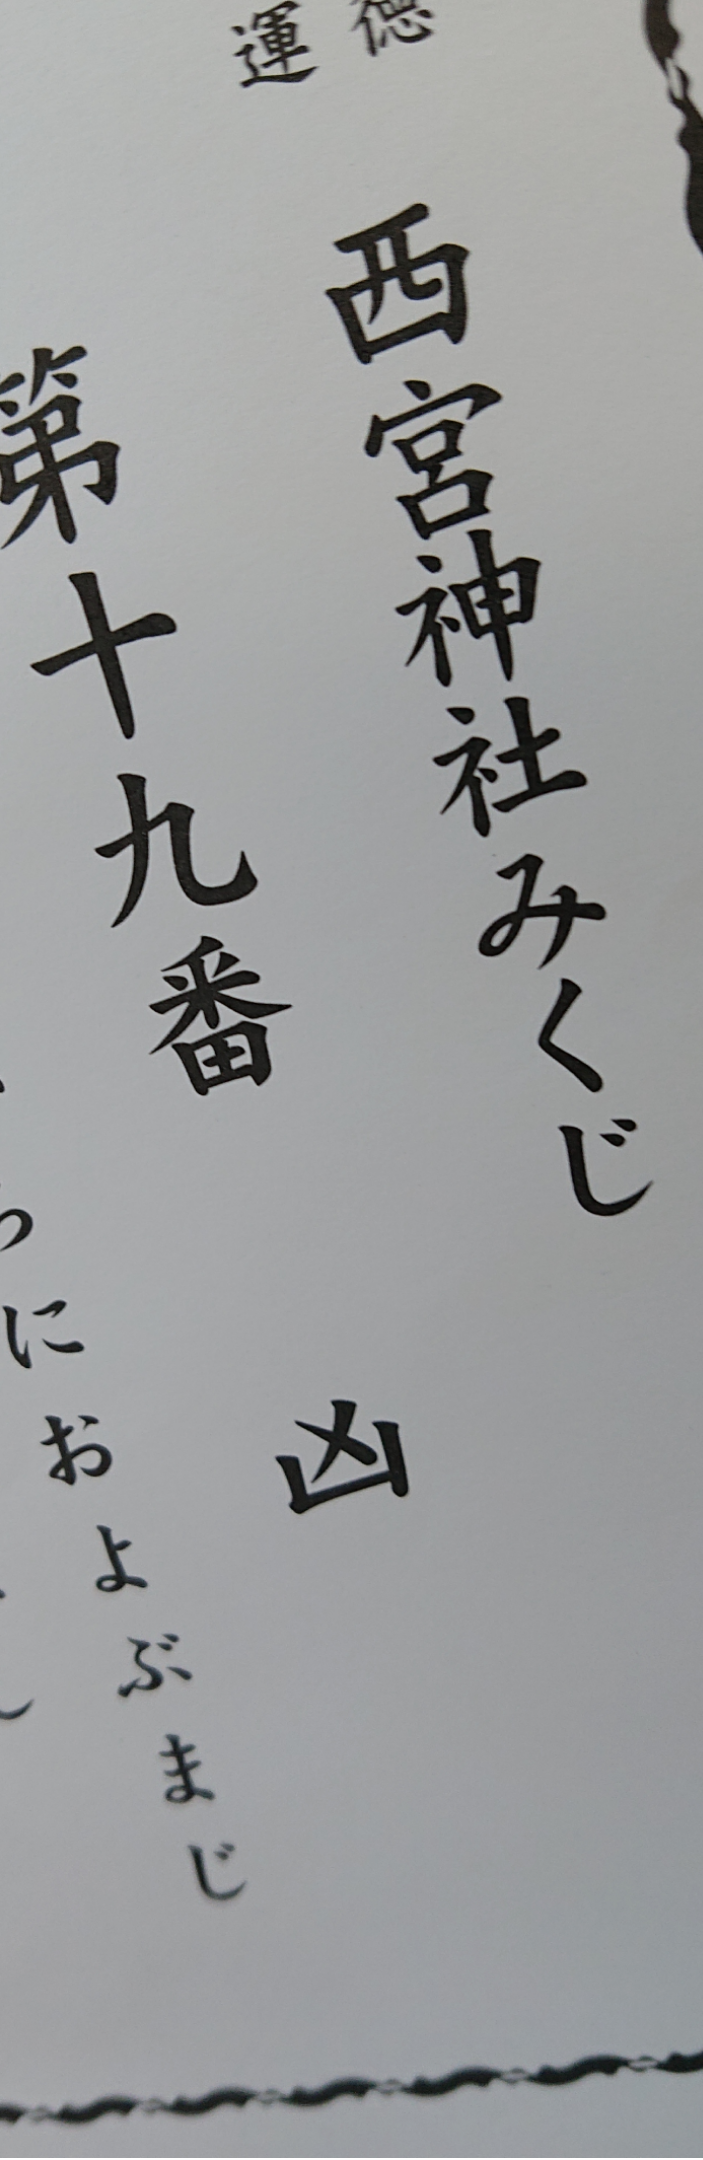 西宮神社みくじ
第十九番 凶
德
運
におよぶまじ